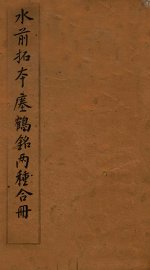 水前拓本瘞鶴銘兩種合冊